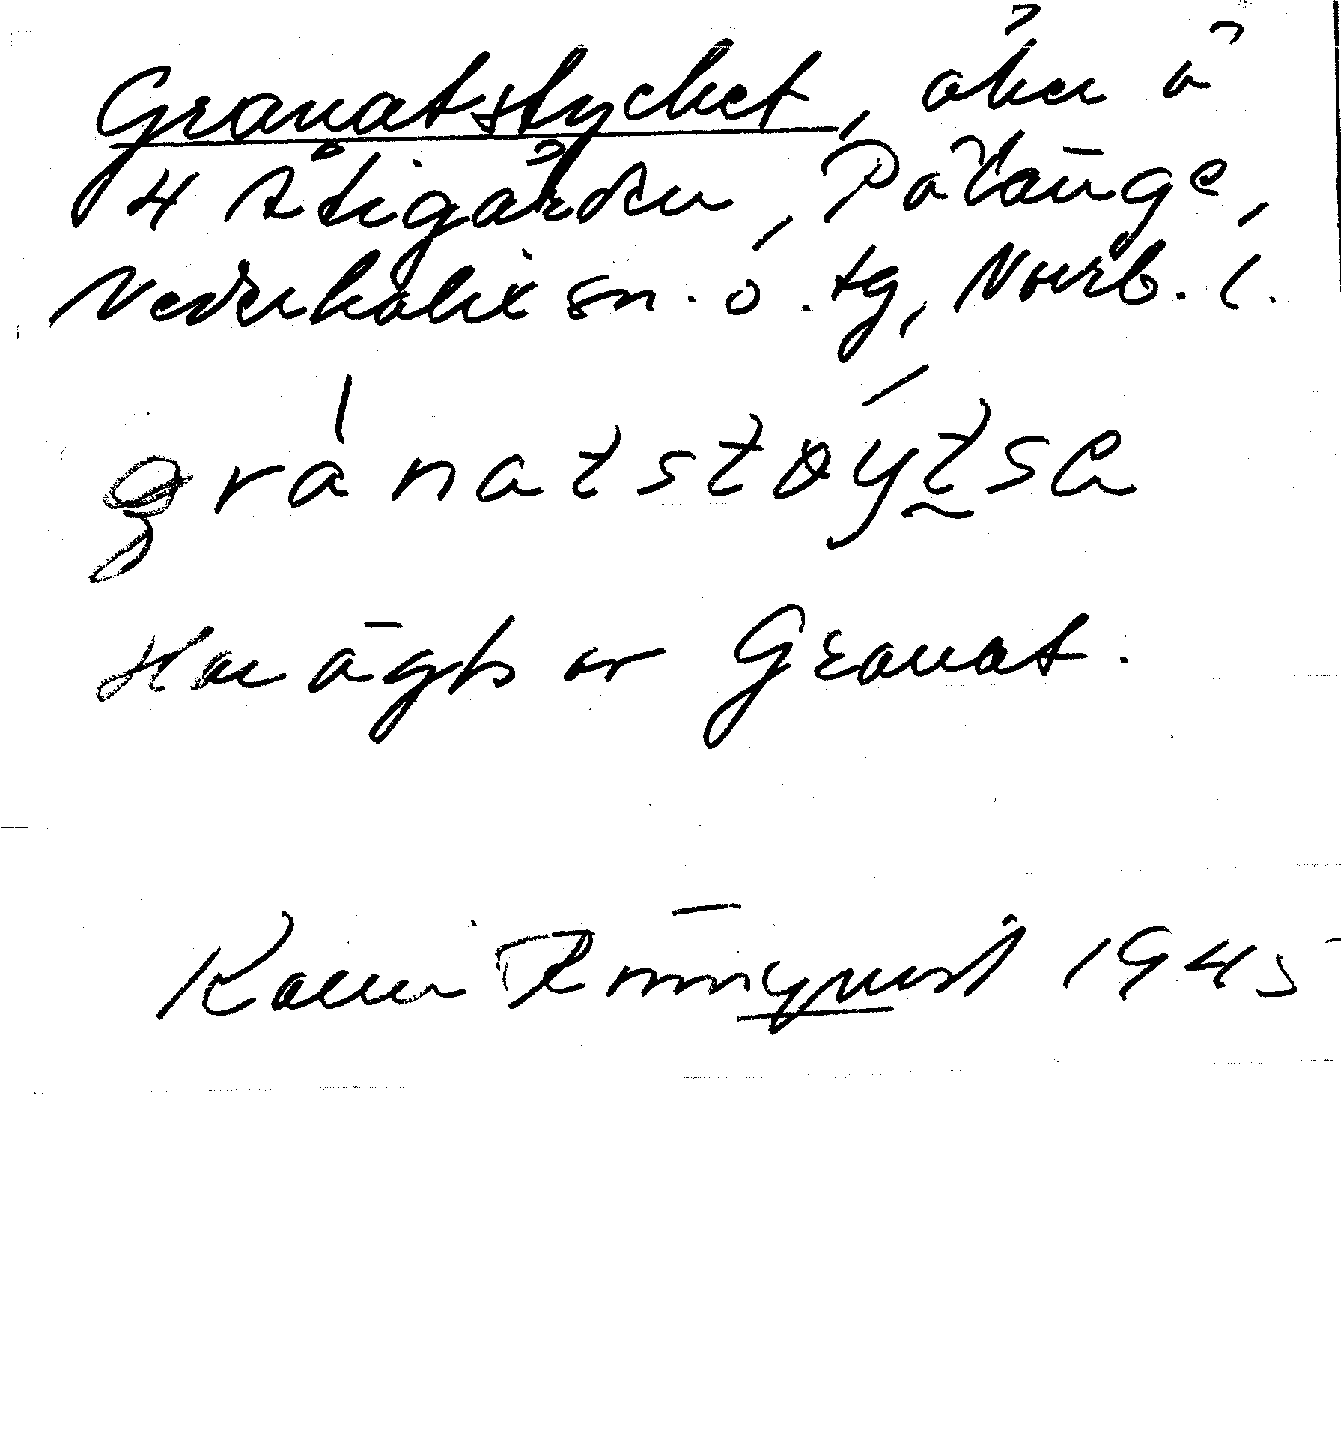 Granatstycket, åker å
4 Stigården, Pålänge,
Nederkalix sn. o. tg, Norrb. l.
gránatstøýtsa
Har ägts av Granat.
Karin Rönnqvist 1945